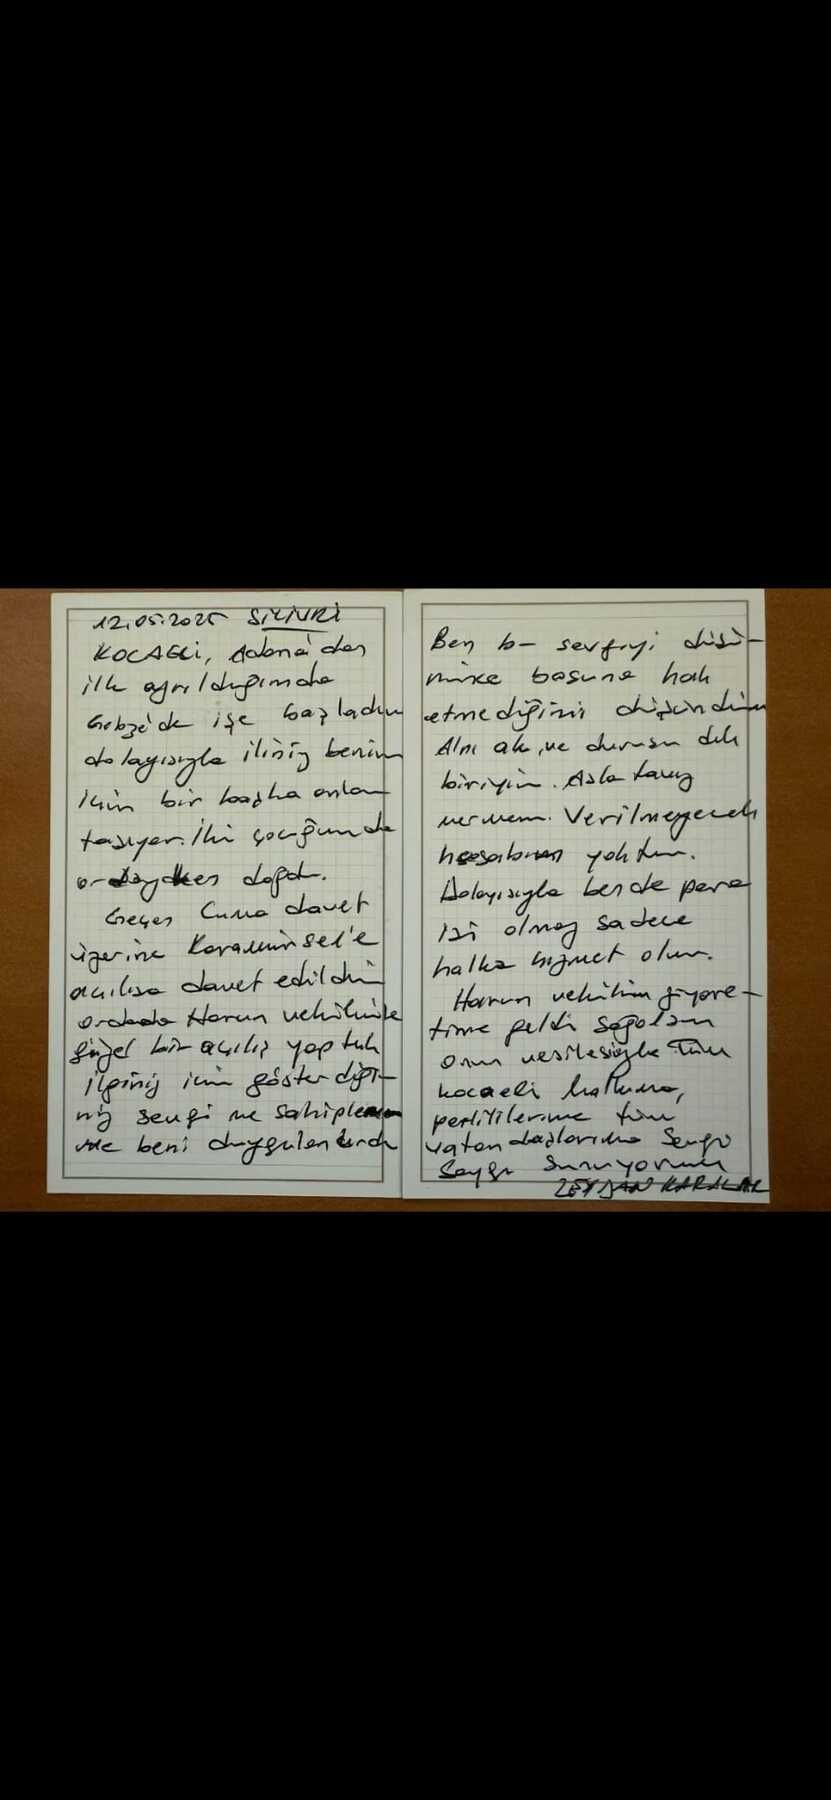 12.05.2025 SİLİVRİ
KOCAELİ, Adana'dan
ilk ayrıldığımda
Gebze'de işe başladım
dolayısıyla iliniz benim
için bir başka anlam
taşıyor. İki çocuğumda
ordayken doğdu.
Geçen Cuma davet
üzerine Karamürsel'e
açılışa davet edildim
ordada Harun vekilimle
güzel bir açılış yaptık
ilginiz için gösterdiği-
niz sevgi ve sahiplenme
beni duygulandırdı
Ben bu sevgiyi düşü-
nünce basına hak
etmediğini düşündüm
Alnı ak, ve duruşu dik
biriyim. Asla taviz
vermem. Verilmeyecek
hesabım yoktur.
Dolayısıyla bende para
işi olmaz sadece
halka hizmet olur.
Harun vekilim ziyare-
time geldi sağolsun
onun vesilesiyle tüm
kocaeli halkına,
partililerime tüm
vatandaşlarıma Sevgi
Saygı Sunuyorum
ZEYDAN KARALAR